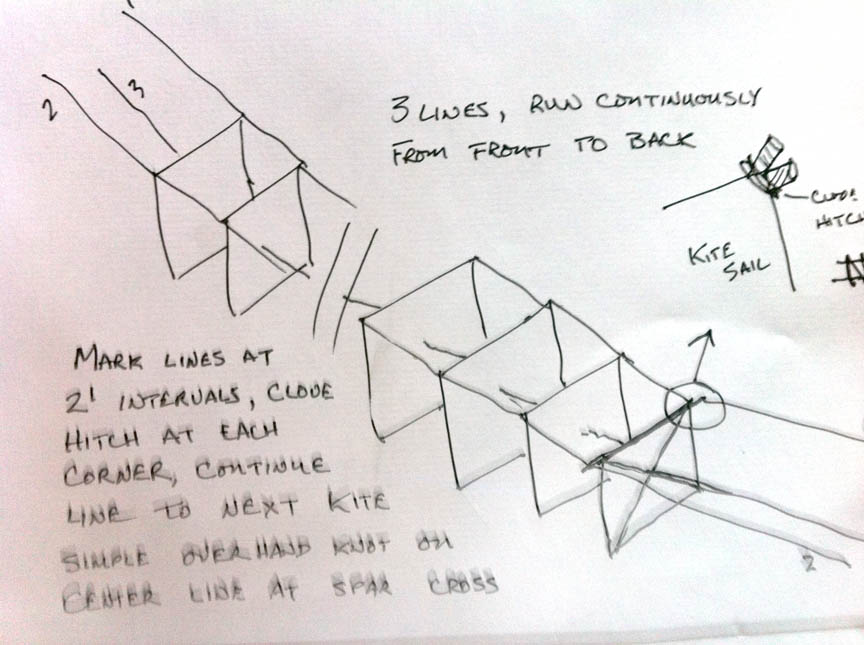 1
2
3
3 LINES, RUN CONTINUOUSLY
FROM FRONT TO BACK
CLOVE
HITCH
KITE
SAIL
MARK LINES AT
2' INTERVALS, CLOVE
HITCH AT EACH
CORNER, CONTINUE
LINE TO NEXT KITE
SIMPLE OVERHAND KNOT ON
CENTER LINE AT SPAR CROSS
2